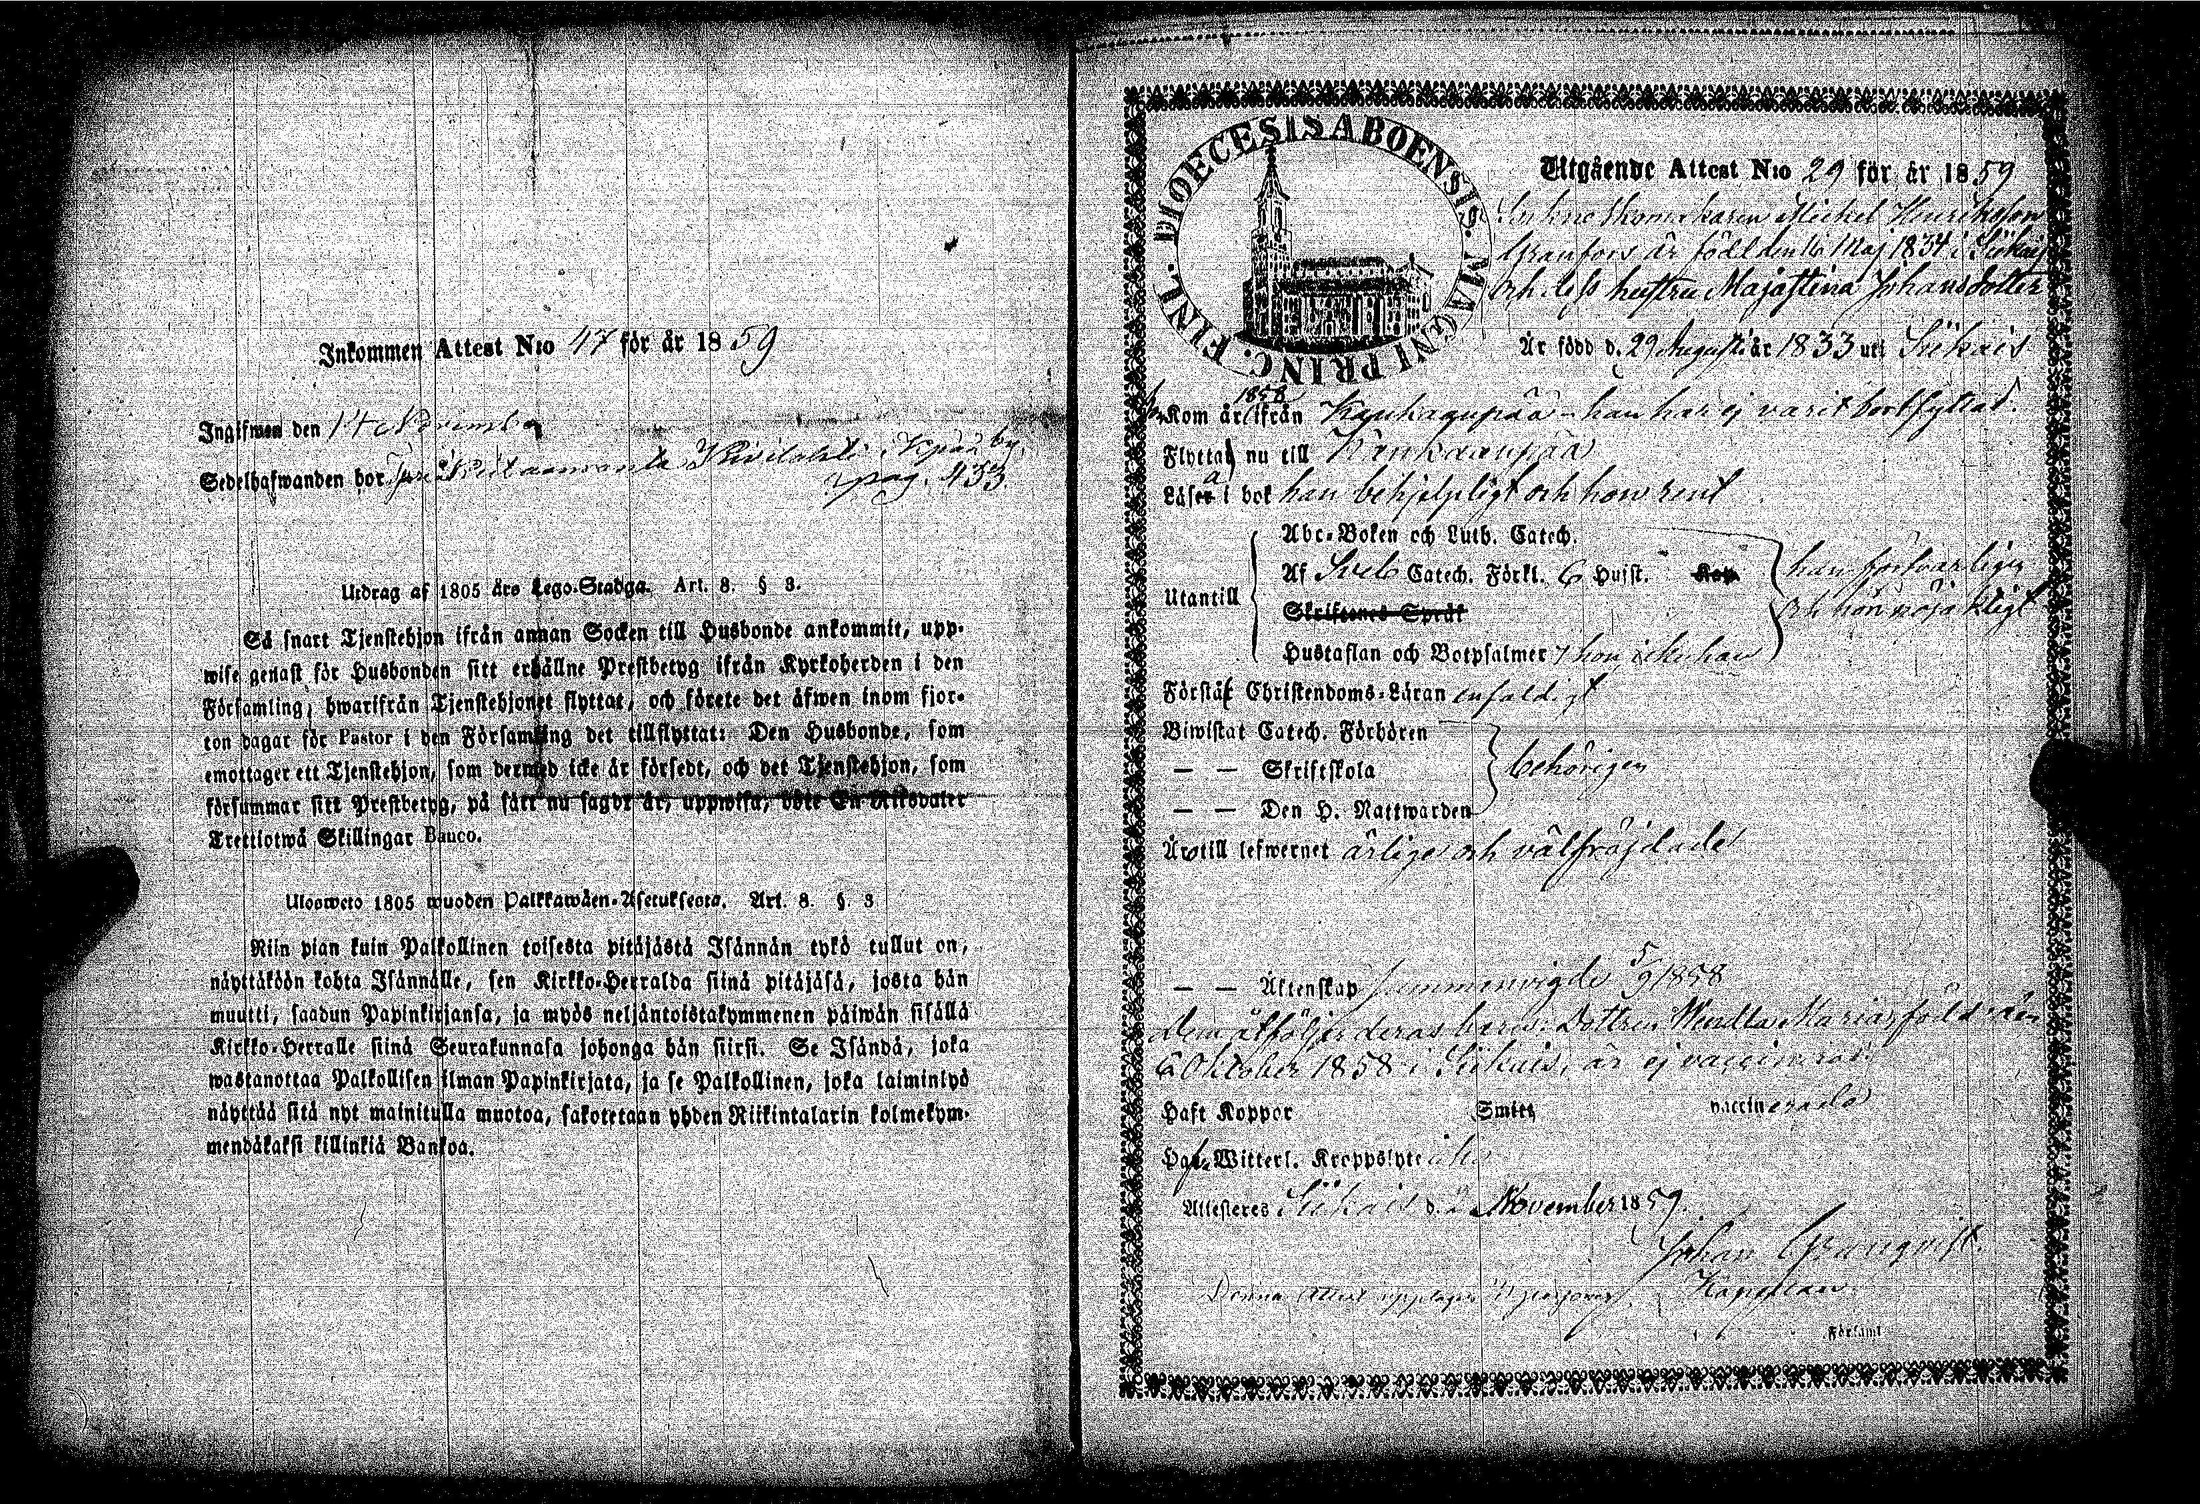 Inkommen Attest N:o 47 för år 1859
Ingifwen den 14 November
Sedelhafwanden bor på by
pag. 433.
Utdrag af 1805 års Lego-Stadga. Art. 8. § 3.
Så snart Tjenstehjon ifrån annan Socken till Husbonde ankommit, upp-
wise genast för Husbonden sitt erhållne Prestbetyg ifrån Kyrkoherden i den
Församling, hwarifrån Tjenstehjonet flyttat, och förete det äfwen inom fjor-
ton dagar för Pastor i den Församling det tillflyttat: Den Husbonde, som
emottager ett Tjenstehjon, som dermed icke är försedt, och det Tjenstehjon, som
försummar sitt Prestbetyg, på sätt nu sagdt är, uppwisa, böte En Riksdaler
Trettiotwå Skillingar Banco.
Ulosweto 1805 wuoden Palkkawäen-Asetuksesta. Art. 8. § 3
Niin pian kuin Palkollinen toisesta pitäjästä Isännän tykö tullut on,
näyttäköön kohta Isännälle, sen Kirkko-Herralda siinä pitäjäsä, josta hän
muutti, saadun Papinkirjansa, ja myös neljäntoistakymmenen päiwän sisällä
Kirkko-Herralle siinä Seurakunnasa johonga hän siirsi. Se Isändä, joka
wastanottaa Palkollisen ilman Papinkirjata, ja se Palkollinen, joka laiminlyö
näyttää sitä nyt mainitulla muotoa, sakotetaan yhden Riikintalarin kolmekym-
mendäkaksi killinkiä Bankoa.
DIOECESIS ABOENSIS. MAGNI PRINC. FINL.
Utgående Attest N:o 29 för år 1859
Michel Henriksson
Granfors är född den 16 Maj 1834 i Siikais
och dess hustru Maja Stina Johansdotter
Är född d. 29 Augusti år 1833 uti Siikais
Kom år 1858 ifrån Kankaanpää - han har ej varit bortflyttad.
Flyttat nu till Kankaanpää
Läsa i bok han behjelpligt och hon rent
Abc-Boken och Luth. Catech.
Utantill
Af Sveb Catech. Förkl. 6 Husst. Kap.
han försvarligen
och hon nöjaktligt
Skriftenes Språk
Hustaflan och Botpsalmer hon icke han
Förstå Christendoms-Läran enfaldigt
Biwistat Catech. Förhören
— — Skriftskola
behörigen
— — Den H. Nattwarden
Äro till lefwernet ärlige och välfräjdade
— — Äktenskap sammanvigde 5/9 1858
Dem åtföljer deras barn: Dottren Wendla Maria, född den
6 Oktober 1858 i Siikais, är ej vaccinerad.
Haft Koppor Smitt vaccinerade
Hafva Witterl. Kroppslyte
Attesteres Siikais d. 2 November 1859.
Johan Granqvist.
Kapellan
Denna Attest upptager personer.
Församl